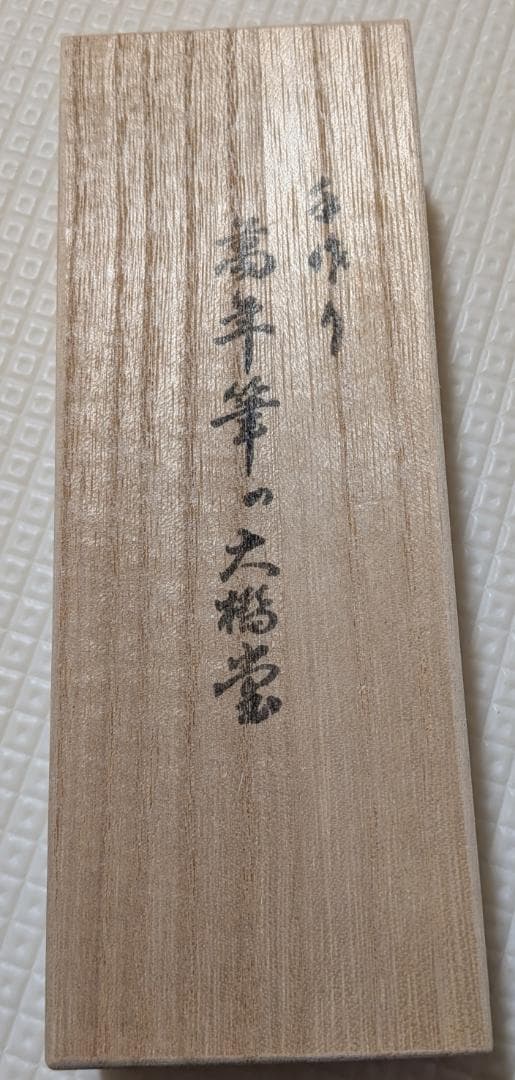 手作り
萬年筆の大橋堂